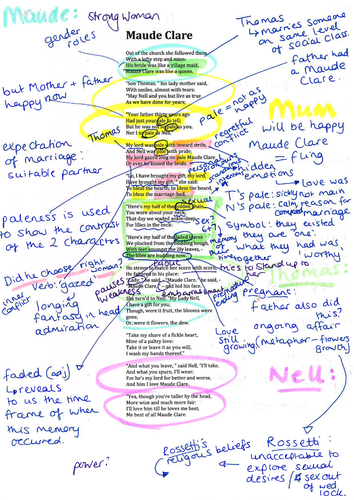 Maude:
strong woman
gender
roles
Maude Clare
Thomas
↳ marries someone
on same level
of social class.
father had
a Maude
Clare.
Out of the church she followed them
With a lofty step and mien:
His bride was like a village maid,
Maude Clare was like a queen.
but Mother + father
happy now
"Son Thomas," his lady mother said,
With smiles, almost with tears:
"May Nell and you but live as true
As we have done for years;
Mum
will be happy
Maude Clare
= fling
"Your father thirty years ago
Had just your tale to tell;
But he was not so pale as you,
Nor I so pale as Nell."
pale = not as
happy
Thomas
regretful
conflict
expectation
of marriage:
suitable partner
My lord was pale with inward strife,
And Nell was pale with pride;
My lord gazed long on pale Maude Clare
Or ever he kissed the bride.
hidden
emotions
"Lo, I have brought my gift, my lord,
Have brought my gift," she said:
To bless the hearth, to bless the board,
To bless the marriage-bed.
love was
T's pale: sickly not main
N's pale: calm, reason for
marriage
paleness is used
to show the contrast
of the 2 characters
"Here's my half of the golden chain
You wore about your neck,
That day we waded ankle-deep
For lilies in the beck:
sexual
sex?
Symbol: they existed
they are one:
what they had
together
worthy
"Here's my half of the faded leaves
We plucked from the budding bough,
With feet amongst the lily leaves, –
The lilies are budding now."
memory
Did he choose right
woman?
Verb: gazed
inner
conflict
longing
fantasy in head
admiration
pauses
weakness
tries to stand up to
Thomas:
He strove to match her scorn with scorn,
He faltered in his place:
"Lady," he said, – "Maude Clare," he said, –
"Maude Clare," – and hid his face.
pregnant:
father also did
this?
ongoing affair
Love
still
growing (metaphor - flowers
growth)
She turn'd to Nell: "My Lady Nell,
I have a gift for you;
Though, were it fruit, the blooms were
gone,
Or, were it flowers, the dew.
faded (adj)
↳ reveals
to us the time
frame of when
this memory
occurred.
"Take my share of a fickle heart,
Mine of a paltry love:
Take it or leave it as you will,
I wash my hands thereof."
Nell:
"And what you leave," said Nell, "I'll take,
And what you spurn, I'll wear;
For he's my lord for better and worse,
And him I love Maude Clare.
"Yea, though you're taller by the head,
More wise and much more fair:
I'll love him till he loves me best,
Me best of all Maude Clare.
power?
Rossetti's
religious beliefs
Rossetti:
unacceptable to
explore sexual
desires / sex out of
wed
lock.